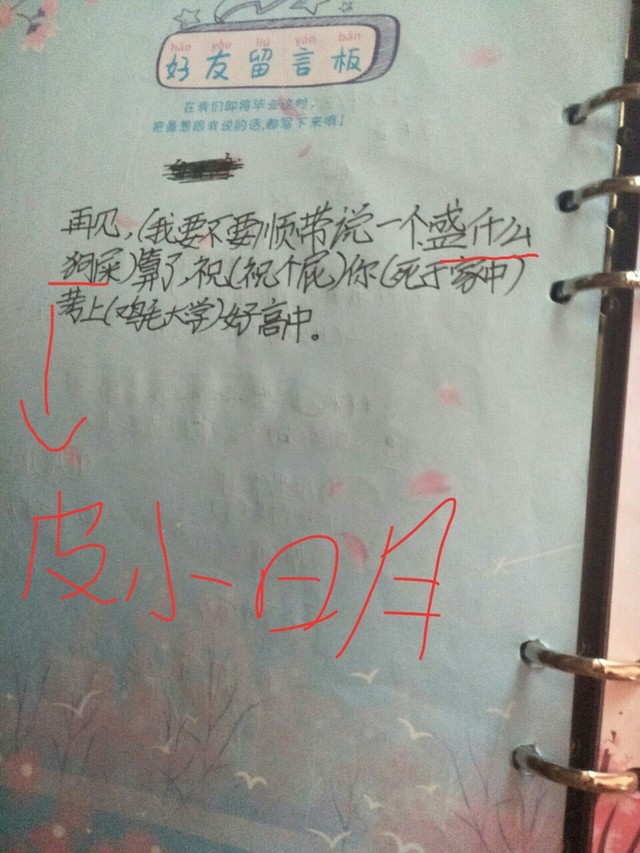 hǎo yǒu liú yán bǎn
好友留言板
在我们即将毕业这时，
把最想跟我说的话，都写下来哦！
再见，(我要不要顺带说一个盛什么
狗屎)算了，祝(祝个屁)你(死于家中)
考上(鸡毛大学)好高中。
皮小日月